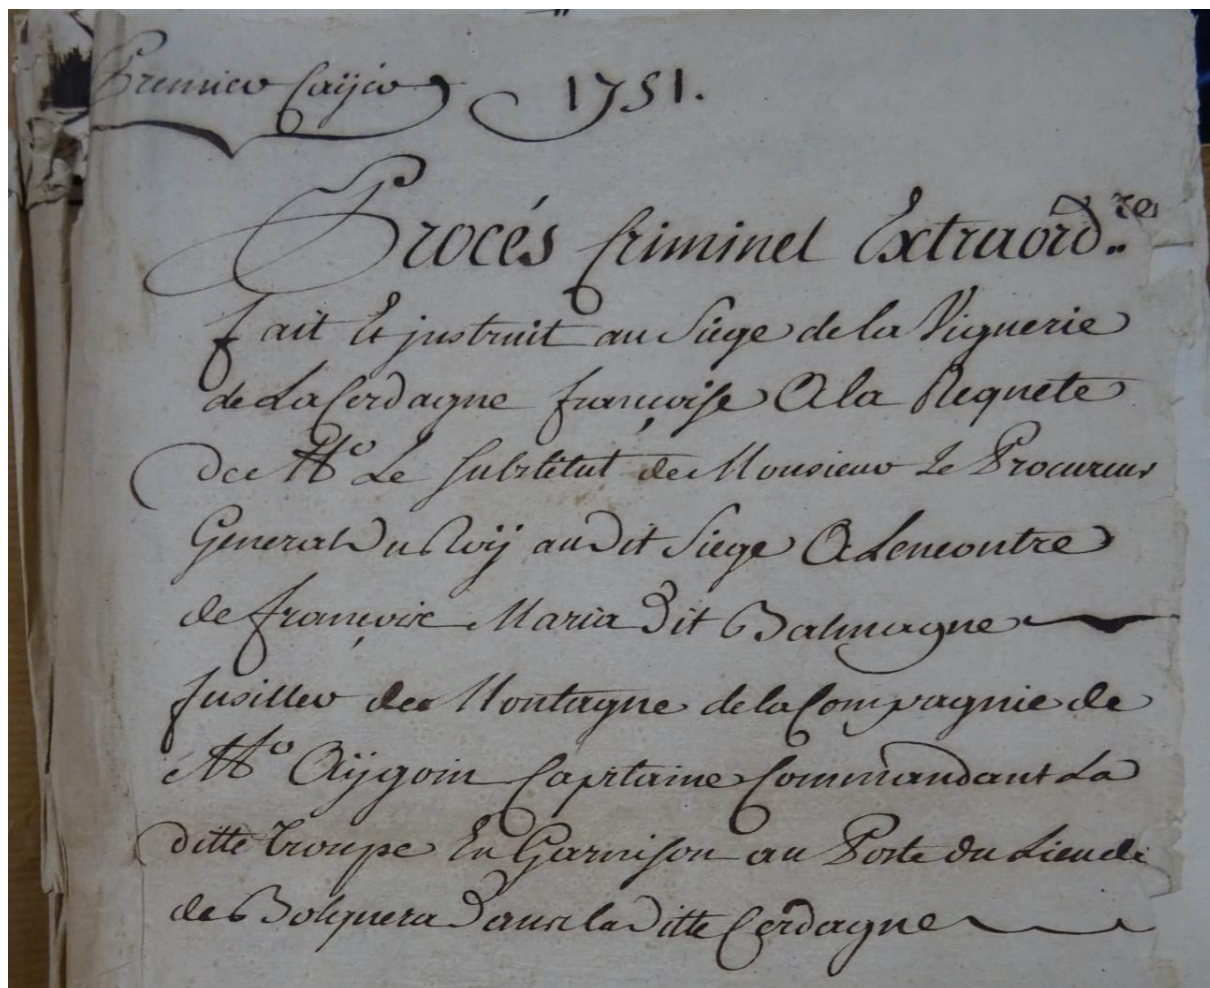 Premier Cayér 1751.
Procés Criminel Extraord.re
fait Et justruit au Siege de la Viguerie
de La Cerdagne françoise A la Requete
de Mr Le Substitut de Monsieur Le Procureur
General Du Roÿ au Dit Siege A Lencontre
de françoix Maria Dit Balmagne
fusiller de Montagne de la Compagnie de
Mr Aÿgoin Capitaine Commandant La
ditte troupe En Garnison au Poste du Lieu de
de Bolquera Dans la Ditte Cerdagne